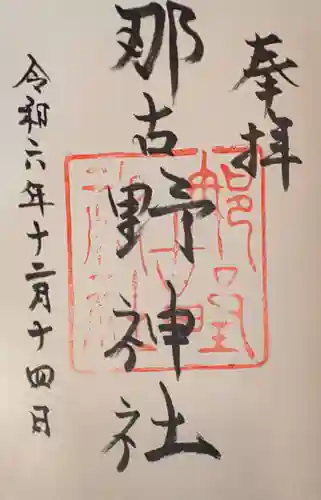 奉拝
那古野神社
令和六年十二月十四日